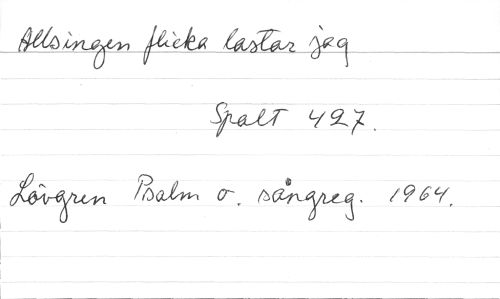 Allsingen flicka lastar jag
Spalt 427.
Lövgren Psalm o. sångreg. 1964.